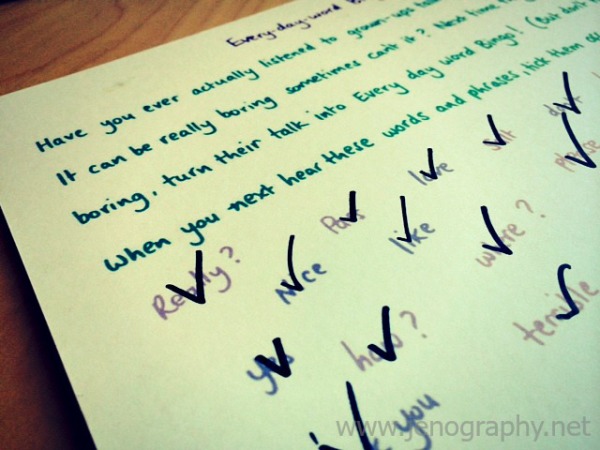 Every-day-word
Have you ever actually listened to grown-ups
It can be really boring sometimes can't it? Next time
boring, turn their talk into Every day word Bingo! (But don't
when you next hear these words and phrases, tick them
Really? Nice Pass like love where? salt please
yes how? terrible
you
www.jenography.net